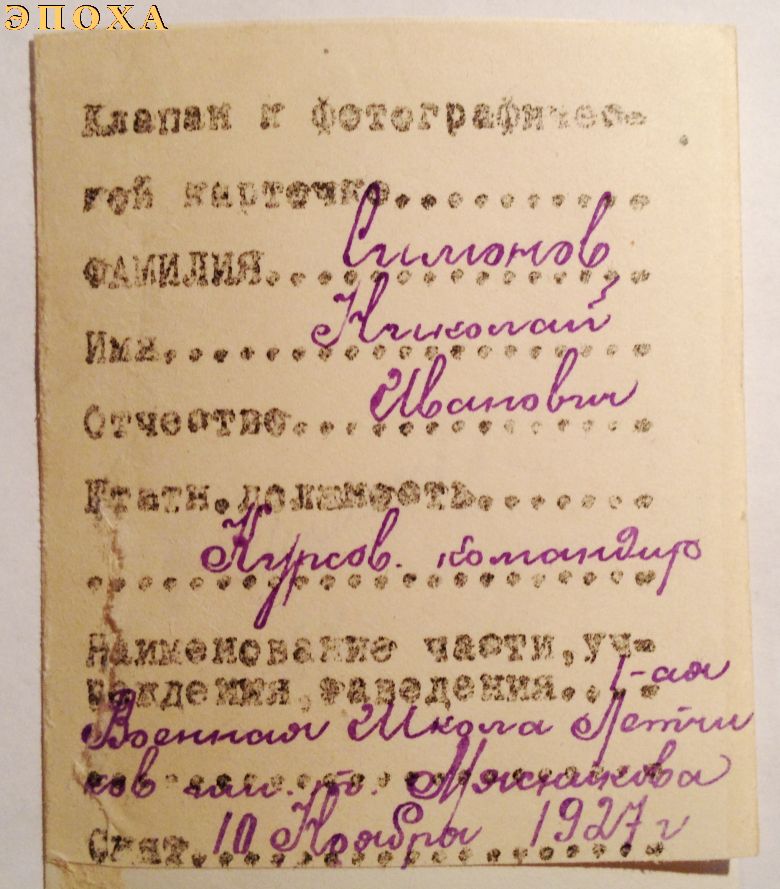 ЭПОХА
Клапан к фотографичес-
кой карточке............
ФАМИЛИЯ.. Симонов
Имя.... Николай
Отчество... Иванович
Штатн.должность.......
Курсов. командир
Наименование части,уч-
реждения,заведения... 1-ая
Военная Школа Летчи
ков им. т. Мясникова
Снят. 10 Ноября 1927 г